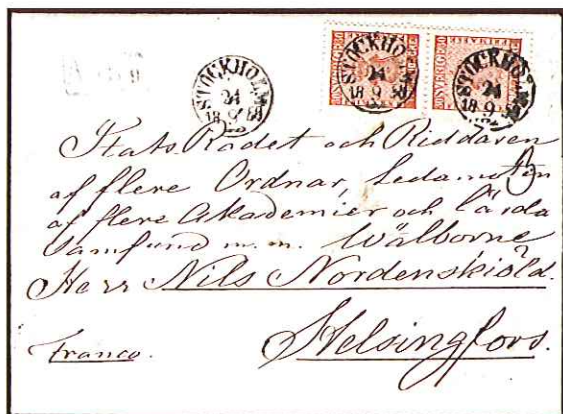 STOCKHOLM
24
18 9 58
STOCKHOLM
24
18 9 58
STOCKHOLM
24
18 9 58
Stats Rådet och Riddaren
af flere Ordnar, Ledamoten
af flere Akademier och lärda
Samfund m. m. Wälborne
Herr Nils Nordenskiöld.
Helsingfors.
Franco.